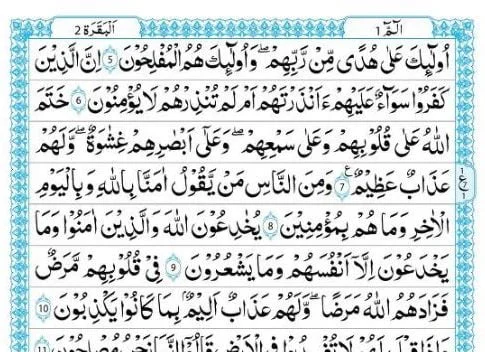 الٓمّٓ ١ البقرة ٢
اُولٰٓئِكَ عَلٰى هُدًى مِّنْ رَّبِّهِمْ ۖ وَاُولٰٓئِكَ هُمُ الْمُفْلِحُوْنَ 5 اِنَّ الَّذِيْنَ
كَفَرُوْا سَوَآءٌ عَلَيْهِمْ ءَاَنْذَرْتَهُمْ اَمْ لَمْ تُنْذِرْهُمْ لَا يُؤْمِنُوْنَ 6 خَتَمَ
اللّٰهُ عَلٰى قُلُوْبِهِمْ وَعَلٰى سَمْعِهِمْ ۖ وَعَلٰٓى اَبْصٰرِهِمْ غِشٰوَةٌ ۖ وَّلَهُمْ
عَذَابٌ عَظِيْمٌ 7 ع وَمِنَ النَّاسِ مَنْ يَّقُوْلُ اٰمَنَّا بِاللّٰهِ وَبِالْيَوْمِ
الْاٰخِرِ وَمَا هُمْ بِمُؤْمِنِيْنَ 8 يُخٰدِعُوْنَ اللّٰهَ وَالَّذِيْنَ اٰمَنُوْا وَمَا
يَخْدَعُوْنَ اِلَّآ اَنْفُسَهُمْ وَمَا يَشْعُرُوْنَ 9 فِيْ قُلُوْبِهِمْ مَّرَضٌ
فَزَادَهُمُ اللّٰهُ مَرَضًا ۖ وَلَهُمْ عَذَابٌ اَلِيْمٌ ۢ بِمَا كَانُوْا يَكْذِبُوْنَ 10